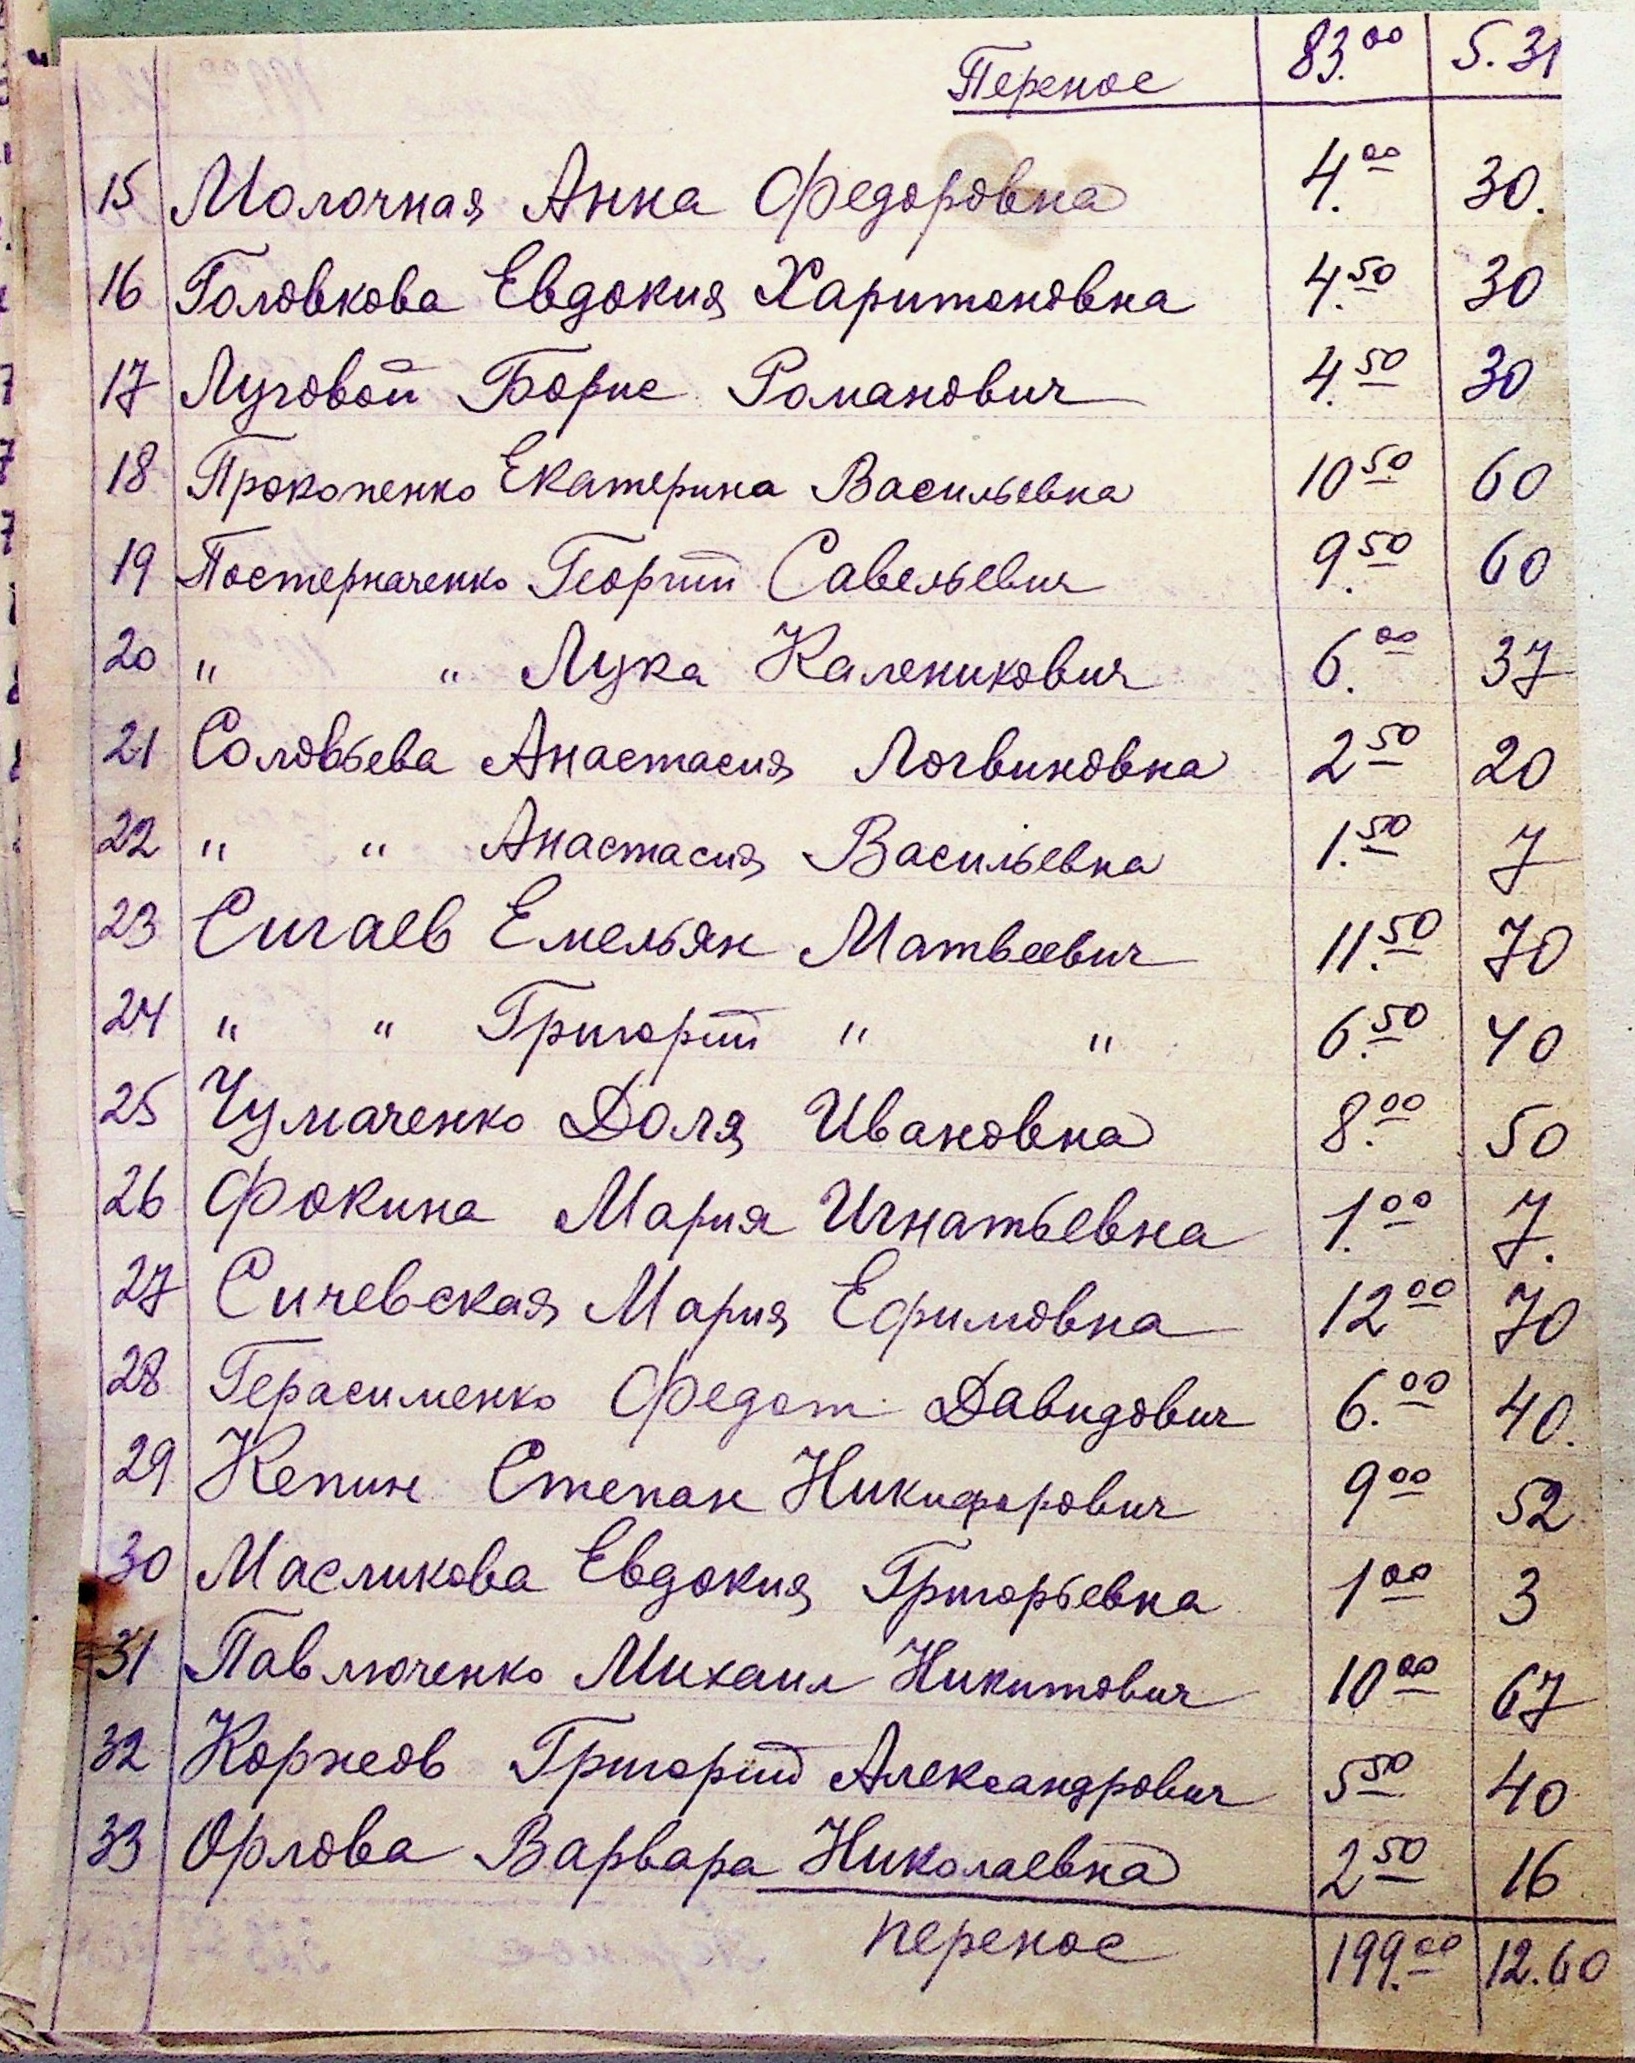 Перенос 83.00 5.31
15 Молочная Анна Федоровна 4.00 30.
16 Головкова Евдокия Харитоновна 4.50 30
17 Луговой Борис Романович 4.50 30
18 Прокопенко Екатерина Васильевна 10.50 60
19 Постерначенко Георгий Савельевич 9.50 60
20 " " Лука Каленикович 6.00 37
21 Соловьева Анастасия Логвиновна 2.50 20
22 " " Анастасия Васильевна 1.50 7
23 Сигаев Емельян Матвеевич 11.50 70
24 " " Григорий " " 6.50 40
25 Чумаченко Доля Ивановна 8.00 50
26 Фокина Мария Игнатьевна 1.00 7.
27 Сичевская Мария Ефимовна 12 00 70
28 Герасименко Федот Давидович 6.00 40.
29 Кепин Степан Никифорович 9 00 52
30 Масликова Евдокия Григорьевна 1 00 3
31 Павлюченко Михаил Никитович 10 00 67
32 Коржов Григорий Александрович 5 50 40
33 Орлова Варвара Николаевна 2 50 16
перенос 199.00 12.60